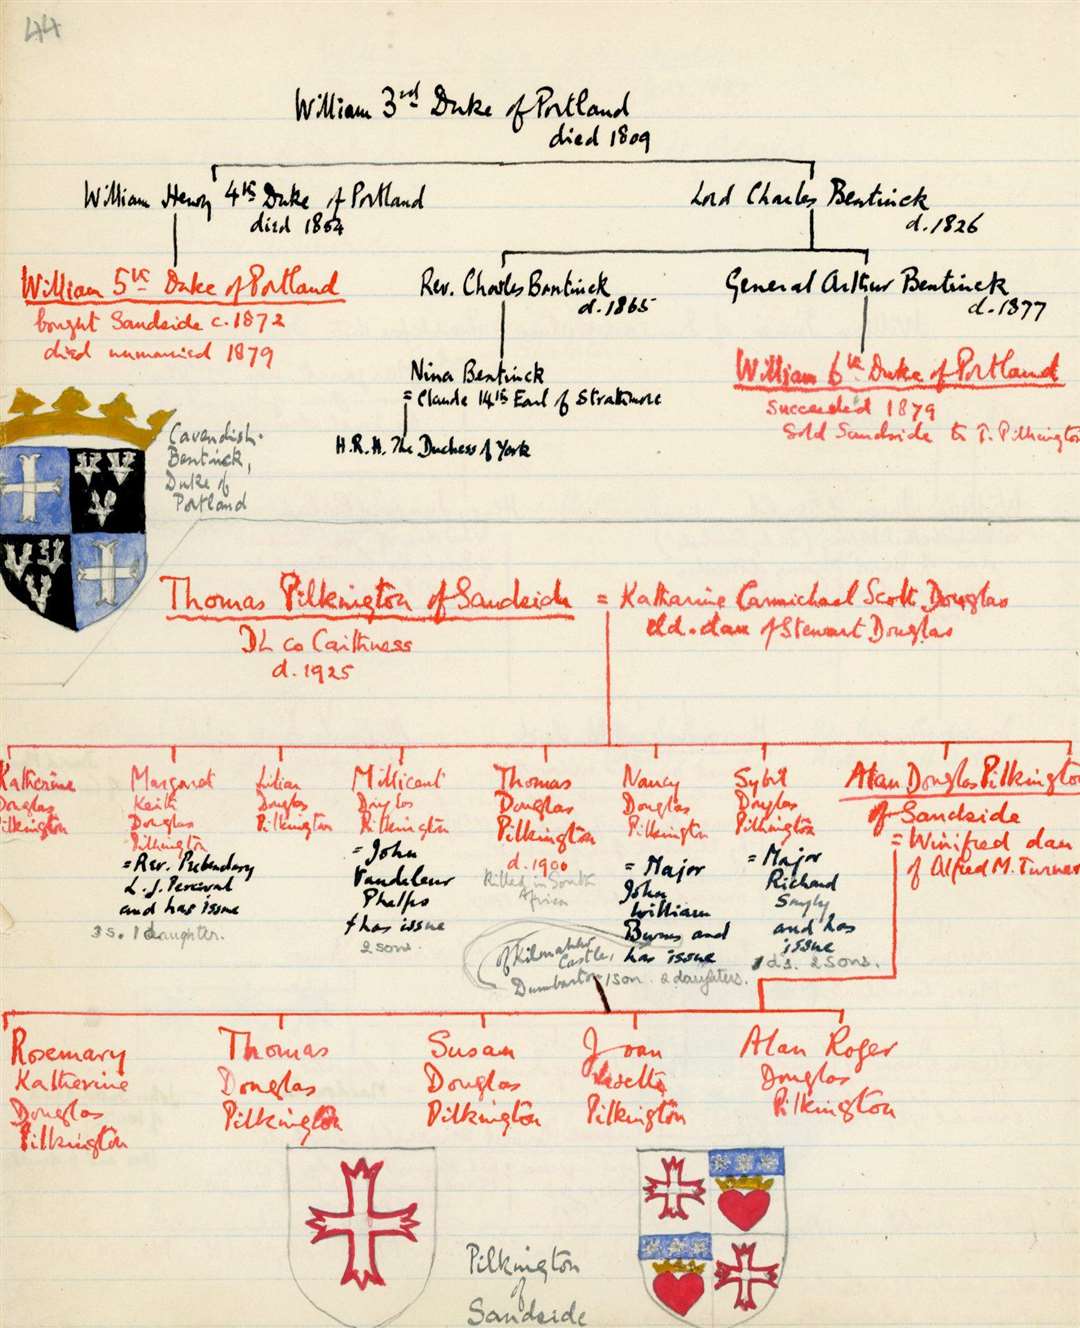 44
William 3rd Duke of Portland
died 1809
William Henry 4th Duke of Portland
died 1854
Lord Charles Bentinck
d. 1826
William 5th Duke of Portland
bought Sandside c. 1872
died unmarried 1879
Rev. Charles Bentinck
d. 1865
General Arthur Bentinck
d. 1877
Nina Bentinck
= Claude 14th Earl of Strathmore
H.R.H. The Duchess of York
William 6th Duke of Portland
Succeeded 1879
Sold Sandside to T. Pilkington
Cavendish-
Bentinck,
Duke of
Portland
Thomas Pilkington of Sandside
DL co Caithness
d. 1925
= Katharine Carmichael Scott Douglas
eld. dau of Stewart Douglas
Katherine
Douglas
Pilkington
Margaret
Keith
Douglas
Pilkington
= Rev. Prebendary
L. J. Percival
and has issue
3 s. 1 daughter.
Lilian
Douglas
Pilkington
Millicent
Douglas
Pilkington
= John
Vandeleur
Phelps
& has issue
2 sons.
Thomas
Douglas
Pilkington
d. 1900
Killed in South
Africa
Nancy
Douglas
Pilkington
= Major
John
William
Burns and
has issue
1 son. 2 daughters.
of Kilmahew
Castle,
Dumbarton
Sybil
Douglas
Pilkington
= Major
Richard
and has
issue
1 d. 2 sons.
Alan Douglas Pilkington
of Sandside
= Winifred dau
of Alfred M. Turner
Rosemary
Katherine
Douglas
Pilkington
Thomas
Douglas
Pilkington
Susan
Douglas
Pilkington
Joan
Pilkington
Alan Roger
Douglas
Pilkington
Pilkington
of
Sandside